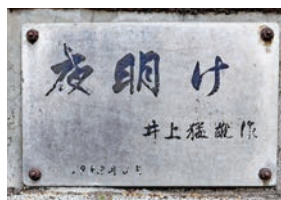 夜明け
井上猛雄作